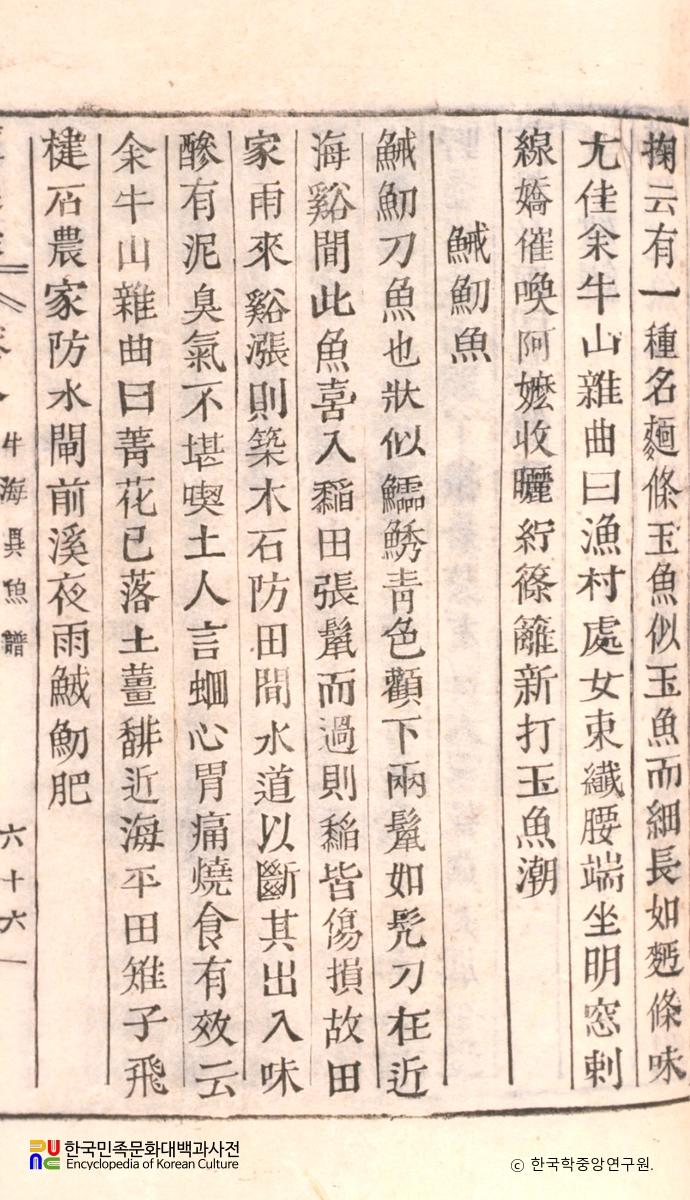 掬云有一種名麵條玉魚似玉魚而細長如麪條味
尤佳余牛山雜曲曰漁村處女束纖腰端坐明窓刺
線嬌催喚阿嬤收曬紵篠籬新打玉魚潮
鰔魛魚
鰔魛刀魚也狀似鱬鮬靑色顴下兩鬣如髠刀在近
海谿間此魚喜入稻田張鬣而過則稻皆傷損故田
家雨來谿漲則築木石防田間水道以斷其出入味
醦有泥臭氣不堪喫土人言蛔心胃痛燒食有效云
余牛山雜曲曰菁花已落土薑馡近海平田雉子飛
楗石農家防水閘前溪夜雨鰔魛肥
牛海異魚譜
六十六
한국민족문화대백과사전
Encyclopedia of Korean Culture
© 한국학중앙연구원.